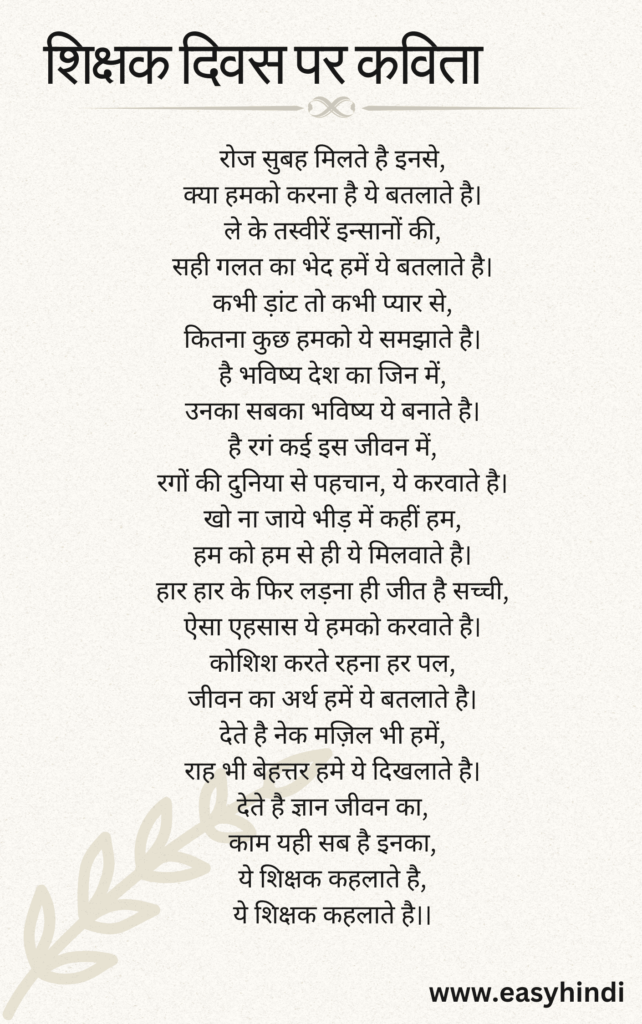 शिक्षक दिवस पर कविता
रोज सुबह मिलते है इनसे,
क्या हमको करना है ये बतलाते है।
ले के तस्वीरें इन्सानों की,
सही गलत का भेद हमें ये बतलाते है।
कभी ड़ांट तो कभी प्यार से,
कितना कुछ हमको ये समझाते है।
है भविष्य देश का जिन में,
उनका सबका भविष्य ये बनाते है।
है रगं कई इस जीवन में,
रगों की दुनिया से पहचान, ये करवाते है।
खो ना जाये भीड़ में कहीं हम,
हम को हम से ही ये मिलवाते है।
हार हार के फिर लड़ना ही जीत है सच्ची,
ऐसा एहसास ये हमको करवाते है।
कोशिश करते रहना हर पल,
जीवन का अर्थ हमें ये बतलाते है।
देते है नेक मज़िल भी हमें,
राह भी बेहत्तर हमे ये दिखलाते है।
देते है ज्ञान जीवन का,
काम यही सब है इनका,
ये शिक्षक कहलाते है,
ये शिक्षक कहलाते है।।
www.easyhindi